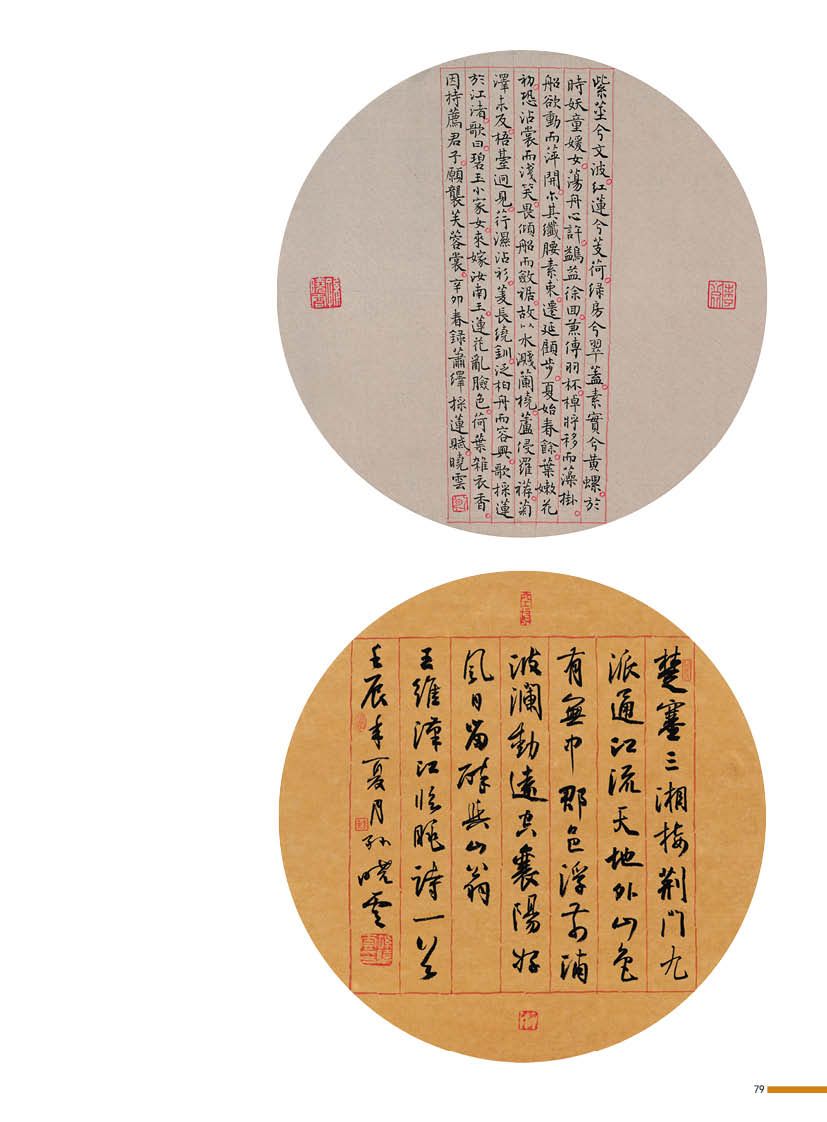 紫莖兮文波紅蓮兮芰荷綠房兮翠蓋素實兮黃螺於
時妖童媛女蕩舟心許鷁益徐回兼傳羽杯棹將移而藻掛
船欲動而萍開尔其纖腰素束遷延顧步夏始春餘葉嫩花
初恐沾裳而淺笑畏傾船而斂裾故以水濺蘭橈蘆侵羅袸菊
澤未反梧臺迥見荇濕沾衫菱長繞釧泛柏舟而容與歌採蓮
於江渚歌曰碧玉小家女來嫁汝南王蓮花亂臉色荷葉雜衣香
因持薦君子願襲芙蓉裳辛卯春錄蕭繹採蓮賦曉雲
楚塞三湘接荊門九
派通江流天地外山色
有無中郡邑浮前浦
波瀾動遠空襄陽好
風日留醉與山翁
王維漢江臨眺詩一首
壬辰年夏月孫曉雲
79